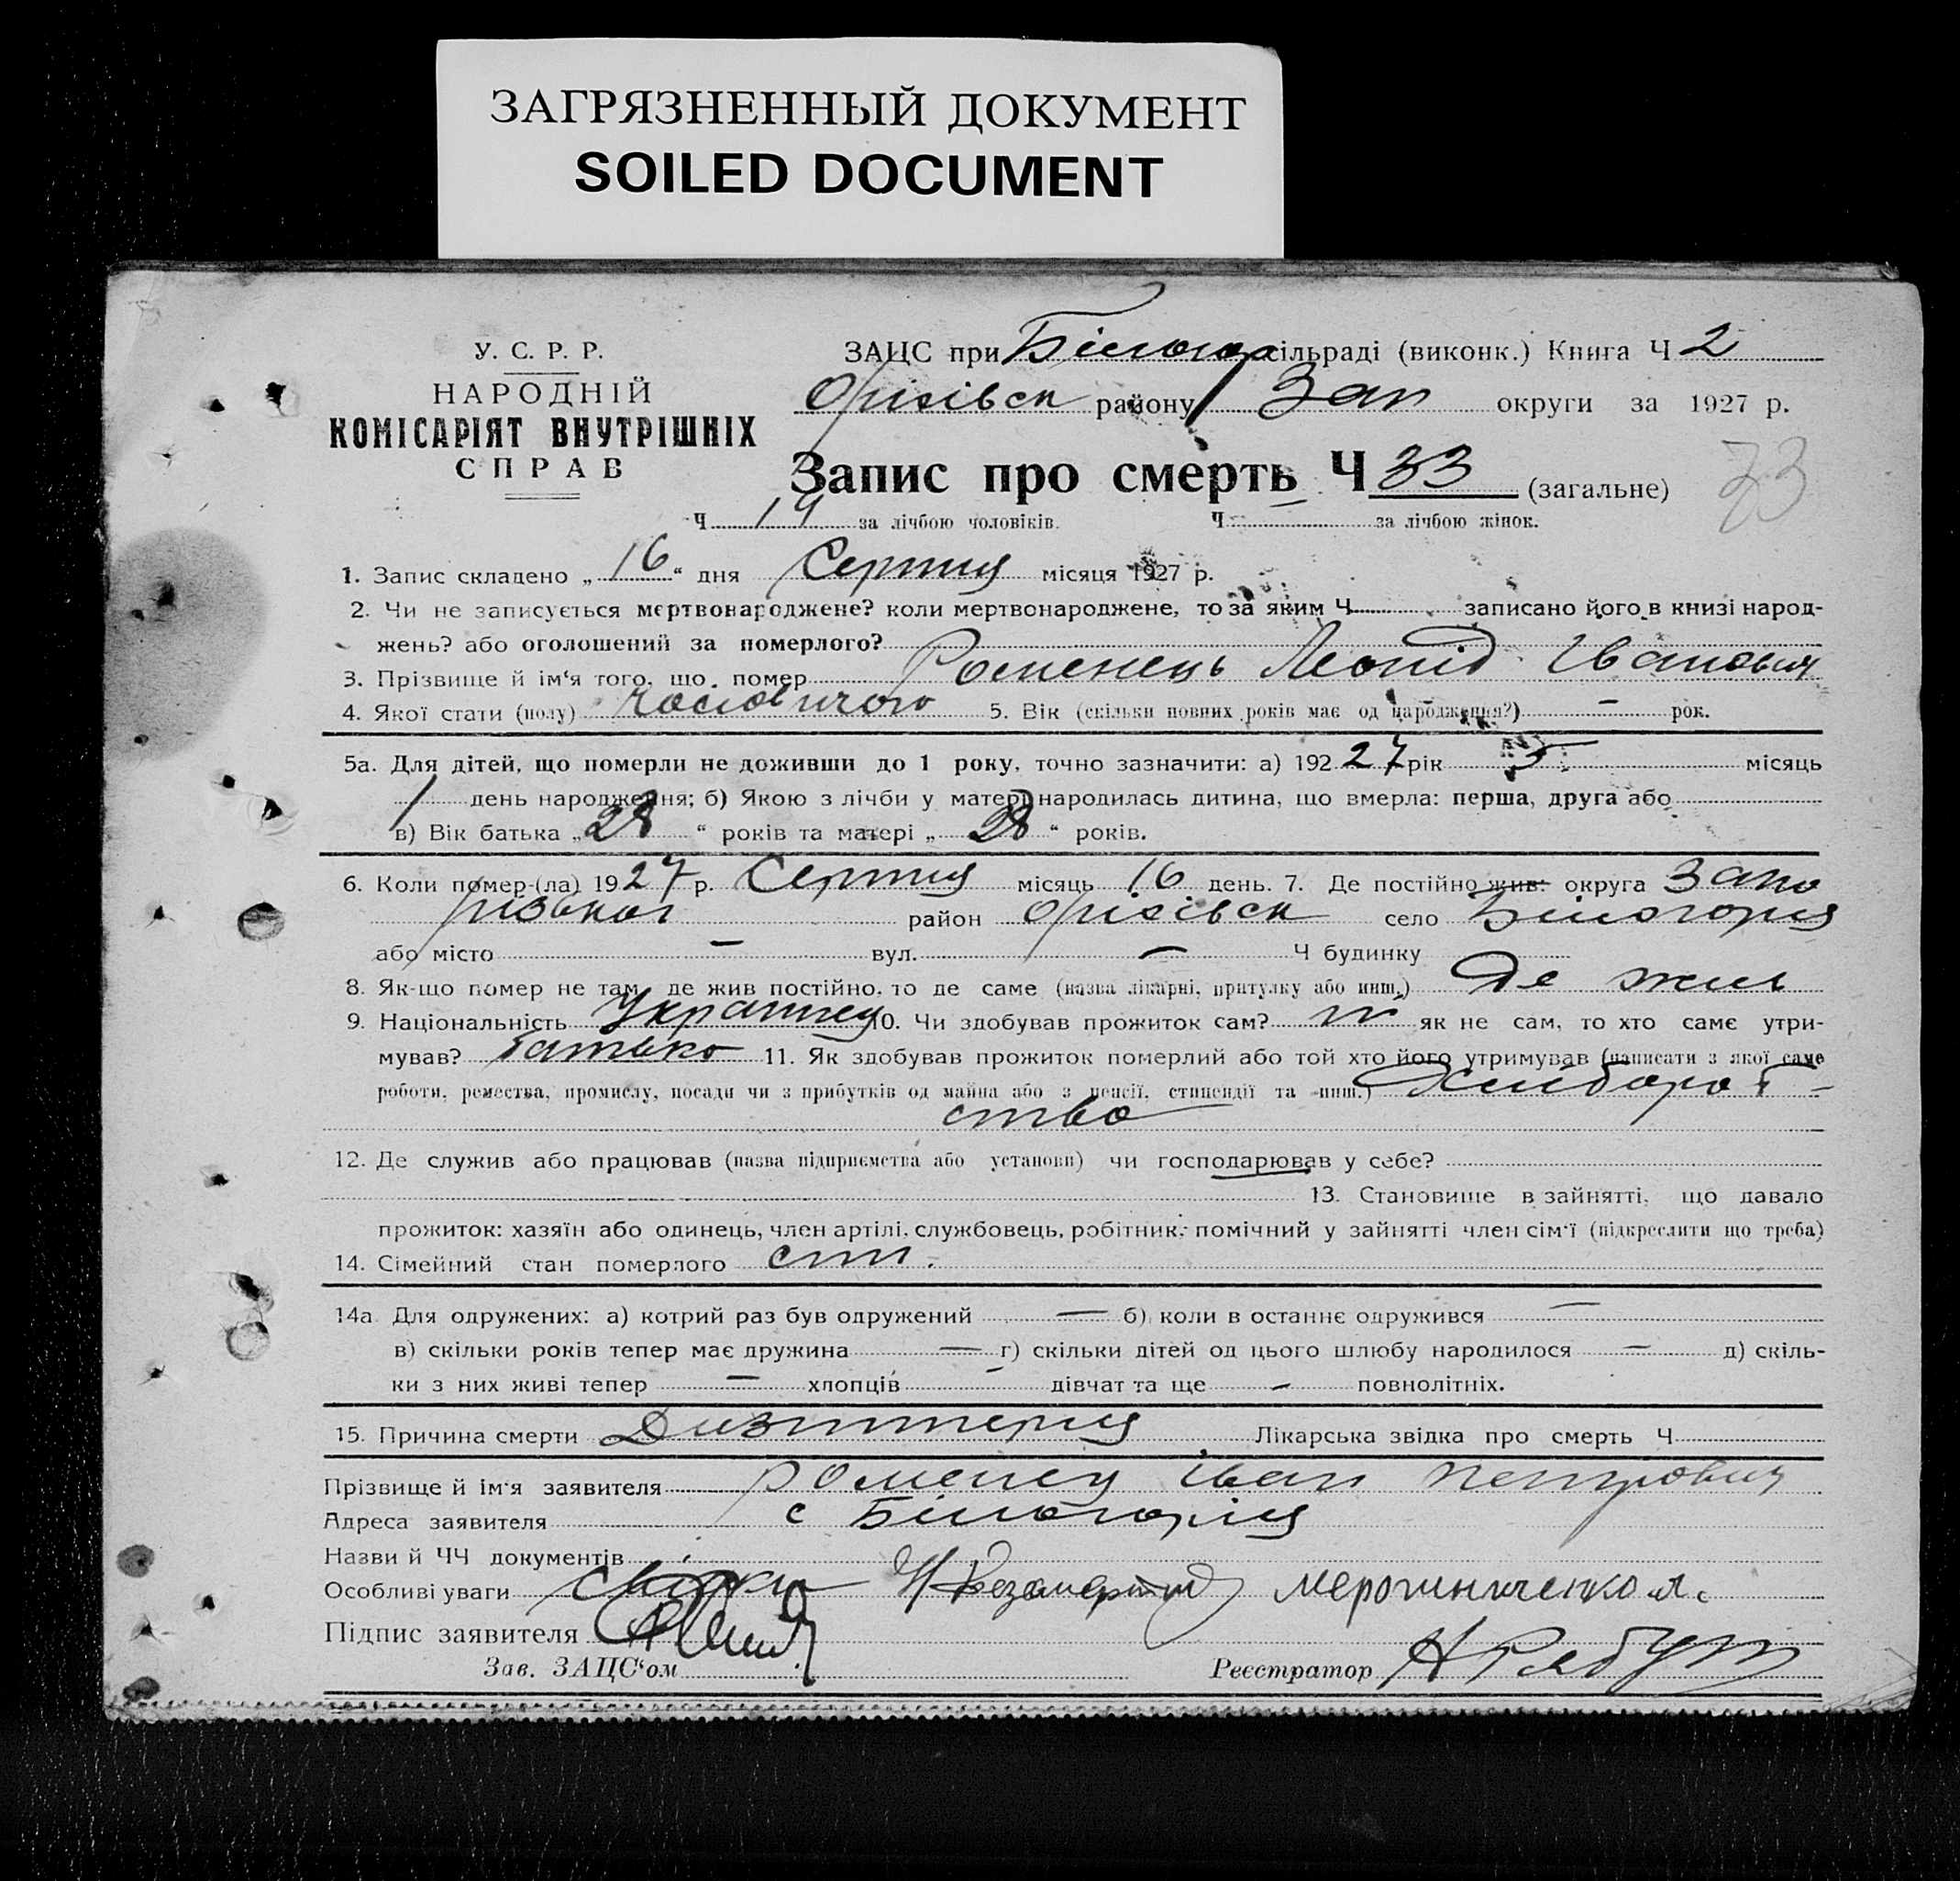 ЗАГРЯЗНЕННЫЙ ДОКУМЕНТ
SOILED DOCUMENT
У. С. Р. Р.
НАРОДНІЙ
КОМІСАРІЯТ ВНУТРІШНІХ
СПРАВ
ЗАЦС при Білогор сільраді (виконк.) Книга Ч 2
Оріхівск району Зап округи за 1927 р.
Запис про смерть Ч 33 (загальне)
73
Ч 19 за лічбою чоловіків. Ч за лічбою жінок.
1. Запис складено „ 16 “ дня Серпня місяця 1927 р.
2. Чи не записується мертвонароджене? коли мертвонароджене, то за яким Ч записано його в книзі народ-
жень? або оголошений за померлого?
3. Прізвище й ім‘я того, що помер Роменець Леонід Іванович
4. Якої стати (полу) чоловічого 5. Вік (скільки повних років має од народження?) — рок.
5а. Для дітей, що померли не доживши до 1 року, точно зазначити: а) 192 27 рік 5 місяць
1 день народження; б) Якою з лічби у матері народилась дитина, що вмерла: перша, друга або
в) Вік батька „ 28 “ років та матері „ 28 “ років.
6. Коли помер-(ла) 1927 р. Серпня місяць 16 день. 7. Де постійно жив: округа Запо
різької район Оріхівск село Білогорія
або місто — вул. — Ч будинку
8. Як-що помер не там, де жив постійно, то де саме (назва лікарні, притулку або инш.) Де жив
9. Національність Українец 10. Чи здобував прожиток сам? ні як не сам, то хто саме утри-
мував? батько 11. Як здобував прожиток померлий або той хто його утримував (написати з якої саме
роботи, ремества, промислу, посади чи з прибутків од майна або з пенсії, стипендії та инш.) Хлібороб-
ство
12. Де служив або працював (назва підприємства або установи) чи господарював у себе?
13. Становище в зайнятті, що давало
прожиток: хазяїн або одинець, член артілі, службовець, робітник, помічний у зайнятті член сім‘ї (підкреслити що треба)
14. Сімейний стан померлого
14а. Для одружених: а) котрий раз був одружений — б) коли в останнє одружився —
в) скільки років тепер має дружина — г) скільки дітей од цього шлюбу народилося — д) скіль-
ки з них живі тепер — хлопців — дівчат та ще - повнолітніх.
15. Причина смерти Дизинтерия Лікарська звідка про смерть Ч
Прізвище й ім‘я заявителя Роменец Іван Петрович
Адреса заявителя с Білогорія
Назви й ЧЧ документів
Особливі уваги свідки
Підпис заявителя
Зав. ЗАЦС‘ом Реєстратор